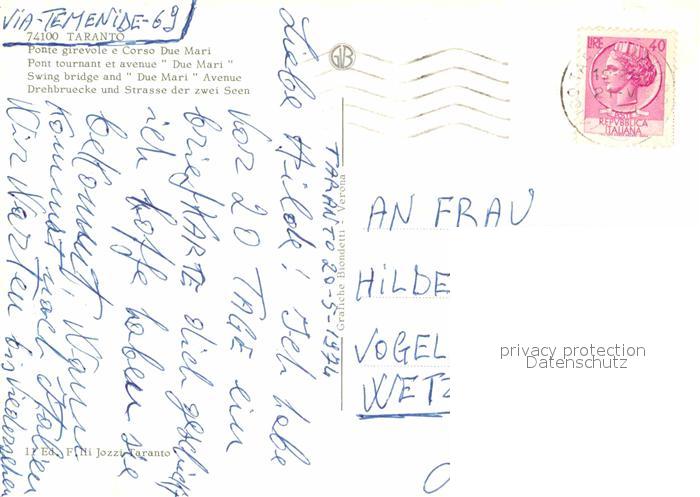 VIA-TEMENIDE-69
74100 TARANTO
Ponte girevole e Corso Due Mari
Pont tournant et avenue " Due Mari "
Swing bridge and " Due Mari " Avenue
Drehbruecke und Strasse der zwei Seen
Liebe Hilde! Ich habe
vor 20 TAGE ein
briefKARTE dich geschickt
ich hoffe haben sie
bekommt, Wann
kommst nach Italien
Wir Warten bis wiedersehen
TARANTO 20-5-1974
Grafiche Biondetti - Verona
GB
LIRE 40
POSTE
REPVBBLICA
ITALIANA
AN FRAU
HILDE
VOGEL
WETZ
privacy protection
Datenschutz
11 Ed. F.lli Jozzi Taranto